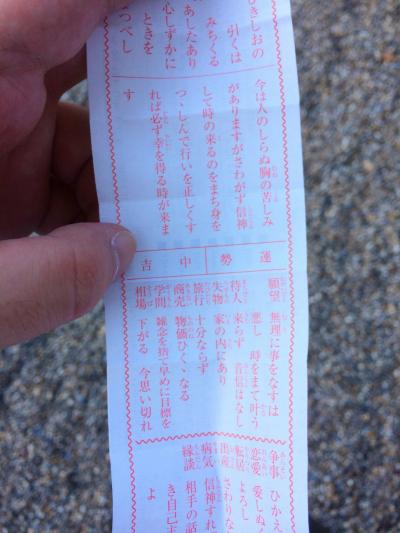 きしおの
引くは
みちくる
あしたあり
心しずかに
ときを
つべし
今は人のしらぬ胸の苦しみ
がありますがさわがず信神
して時の来るのをまち身を
つゝしんで行いを正しくす
れば必ず幸を得る時が来ま
す
運勢 中吉
願望 無理に事をなすは
悪し 時をまて叶う
待人 来らず 音信はなし
失物 家の内にあり
旅行 十分ならず
商売 物価ひくゝなる
学問 雑念を捨て早めに目標を
相場 下がる 今思い切れ
争事 ひかえ
恋愛 愛しぬく
転居 よろし
出産 さわりな
病気 信神すれ
縁談 相手の話
き自己主
よ